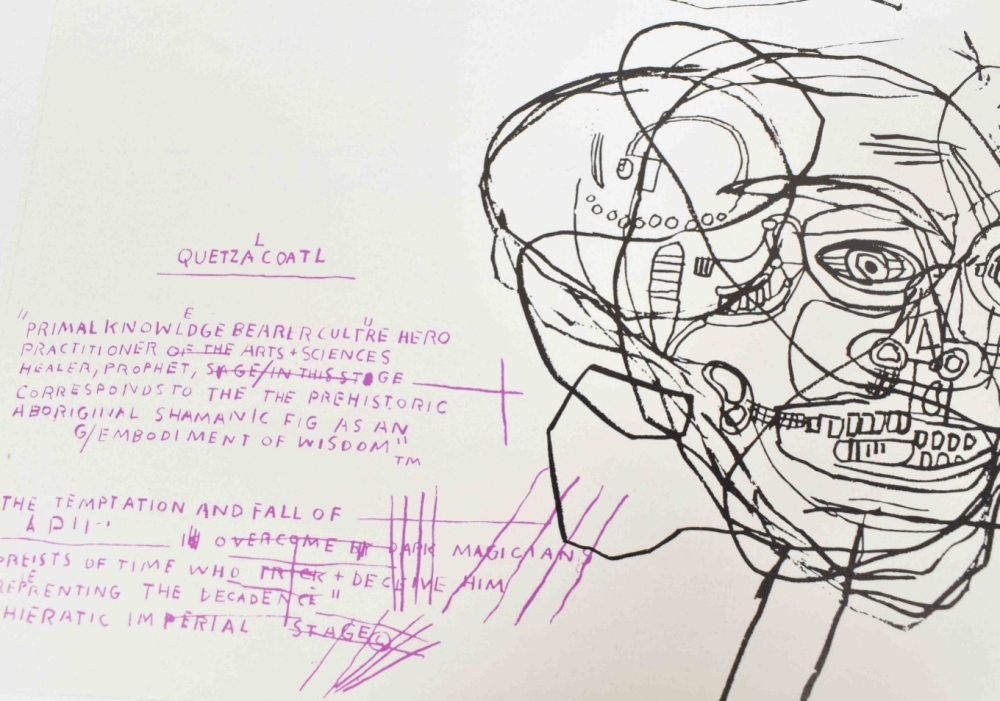 QUETZALCOATL
"PRIMAL KNOWLEDGE BEARER CULTURE HERO
PRACTITIONER OF THE ARTS + SCIENCES
HEALER, PROPHET, SAGE/IN THIS STAGE
CORRESPONDS TO THE THE PREHISTORIC
ABORIGINAL SHAMANIC FIG AS AN
G/EMBODIMENT OF WISDOM"
TM
THE TEMPTATION AND FALL OF
OVERCOME BY DARK MAGICIANS
PREISTS OF TIME WHO TRICK + DECEIVE HIM
REPRENTING THE DECADENCE"
HIERATIC IMPERIAL STAGE